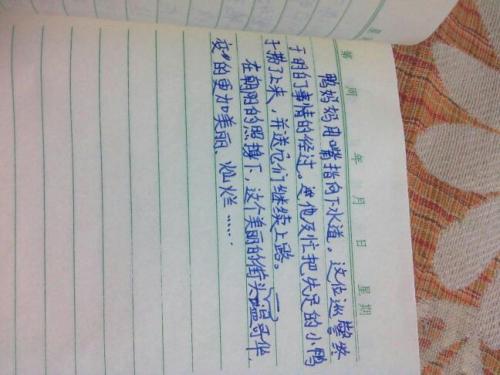 第 周 年 月 日 星期
鸭妈妈用嘴指向下水道，这位巡警终
于明白了事情的经过。他及忙把失足的小鸭
子捞了上来，并送它们继续上路。
在朝阳的照耀下，这个美丽的街头温哥华，
变的更加美丽、灿烂……